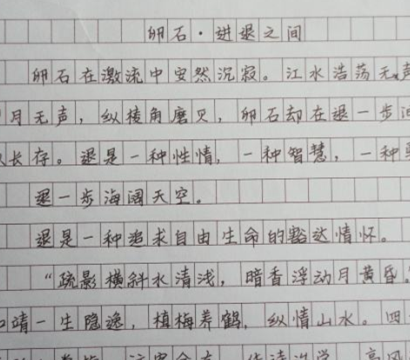 卵石·进退之间
卵石在激流中虽然沉寂。江水浩荡无声
月无声，纵棱角磨灭，卵石却在退一步
长存。退是一种性情，一种智慧，一种
退一步海阔天空。
退是一种追求自由生命的豁达情怀。
“疏影横斜水清浅，暗香浮动月黄昏。
靖一生隐逸，植梅养鹤，纵情山水。四